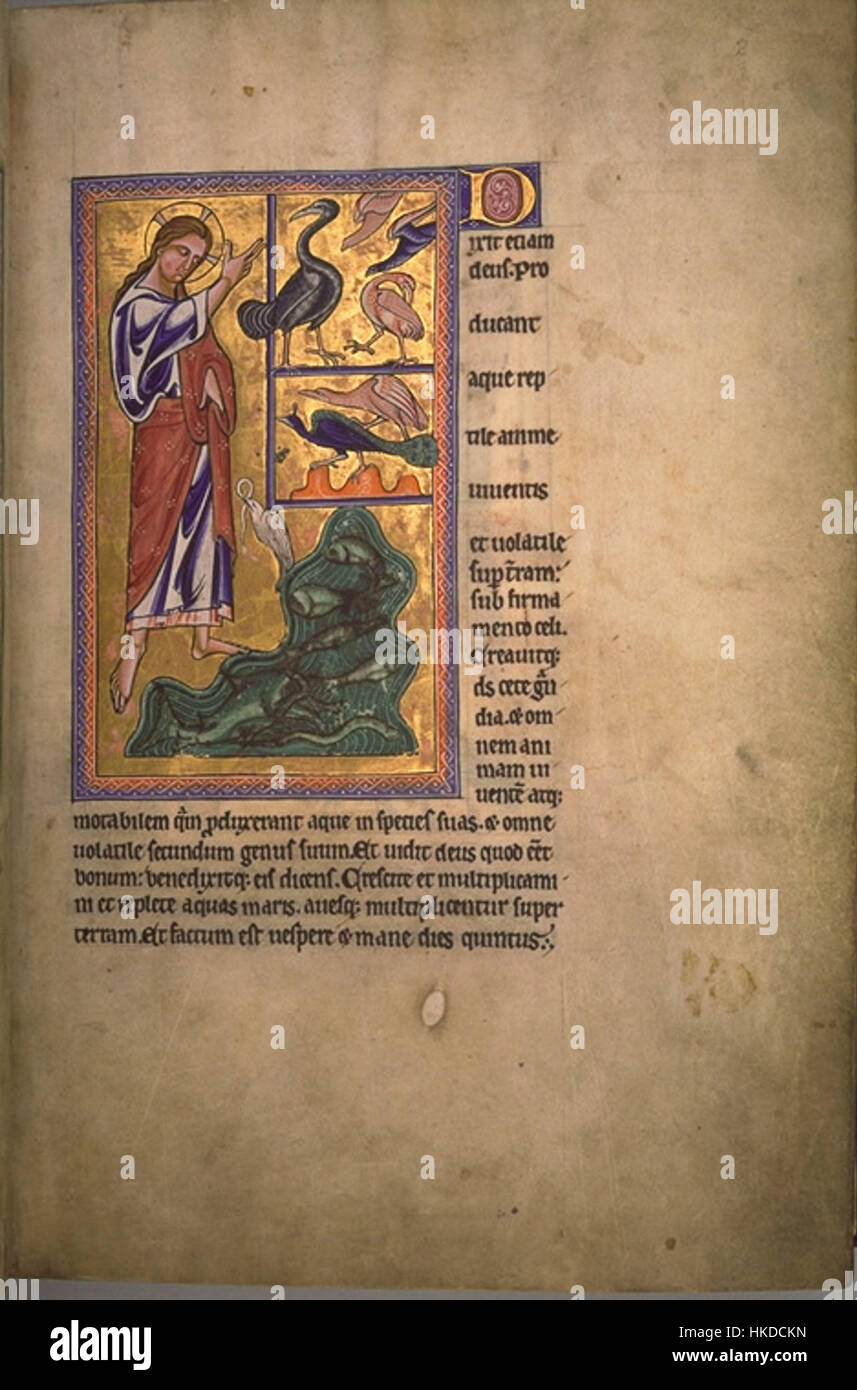 2
D
ixit etiam
deus: Pro
ducant
aque rep
tile anime
uiuentis
et uolatile
sup t̄ram:
sub firma
mento celi.
Creauitq:
ds cete g̃n
dia. & om
nem ani
mam ui
uentē atq:
motabilem q̃m pduxerant aque in species suas. & omne
uolatile secundum genus suum. Et uidit deus quod eēt
bonum: benedixitq: eis dicens. Crescite et multiplicami
ni et replete aquas maris. auesq: multiplicentur super
terram. Et factum est uespere & mane dies quintus.
alamy
a
alamy
Image ID: HKDCKN
www.alamy.com